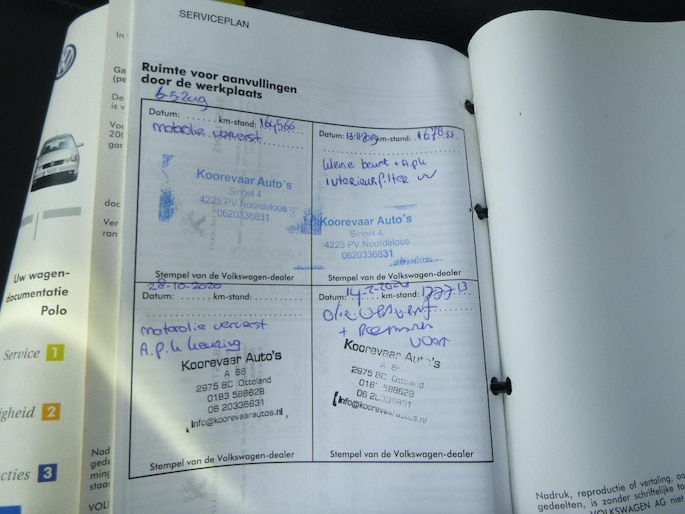 SERVICEPLAN
Ruimte voor aanvullingen
door de werkplaats
Datum: km-stand: 164566
motorolie ververst
Koorevaar Auto's
Singel 4
4225 PV Noordeloos
0620336831
Stempel van de Volkswagen-dealer
Datum: km-stand:
kleine beurt + A.p.k
Interieurfilter vv
Koorevaar Auto's
Singel 4
4225 PV Noordeloos
0620336831
Stempel van de Volkswagen-dealer
28-10-2020
Datum: km-stand:
motorolie ververst
A.p.k keuring
Koorevaar Auto's
A 66
2975 BC Ottoland
0183 588628
06 20336831
info@koorevaarautos.nl
Stempel van de Volkswagen-dealer
Datum: km-stand:
+ Remmen
voor
Koorevaar Auto's
A 66
2975 BC Ottoland
0183 588628
06 20336831
info@koorevaarautos.nl
Stempel van de Volkswagen-dealer
Uw wagen-
documentatie
Polo
Service 1
2
3
Nadruk, reproductie of vertaling, oo
gedeelten, is zonder schriftelijke to
VOLKSWAGEN AG niet